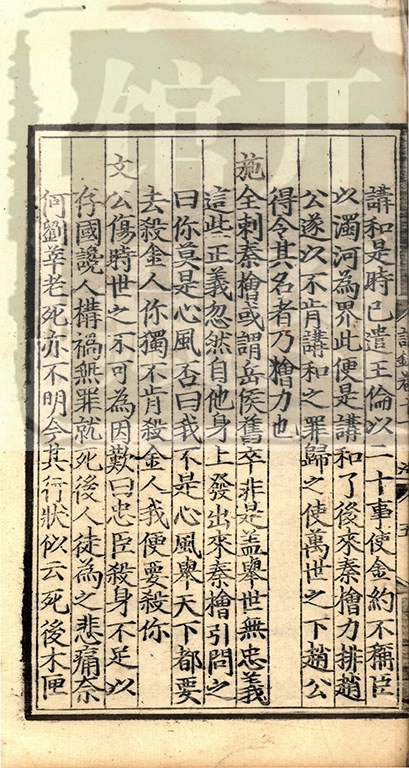 講和是時已遣王倫以二十事使金約不稱臣
以濁河為界此便是講和了後來秦檜力排趙
公遂以不肯講和之罪歸之使萬世之下趙公
得令其名者乃檜力也
施全刺秦檜或謂岳侯舊卒非是盖舉世無忠義
這些正義忽然自他身上發出來秦檜引問之
曰你莫是心風否曰我不是心風舉天下都要
去殺金人你獨不肯殺金人我便要殺你
文公傷時世之不可為因歎曰忠臣殺身不足以
存國讒人構禍無罪就死後人徒為之悲痛奈
何劉莘老死亦不明今其行狀似云死後木匣